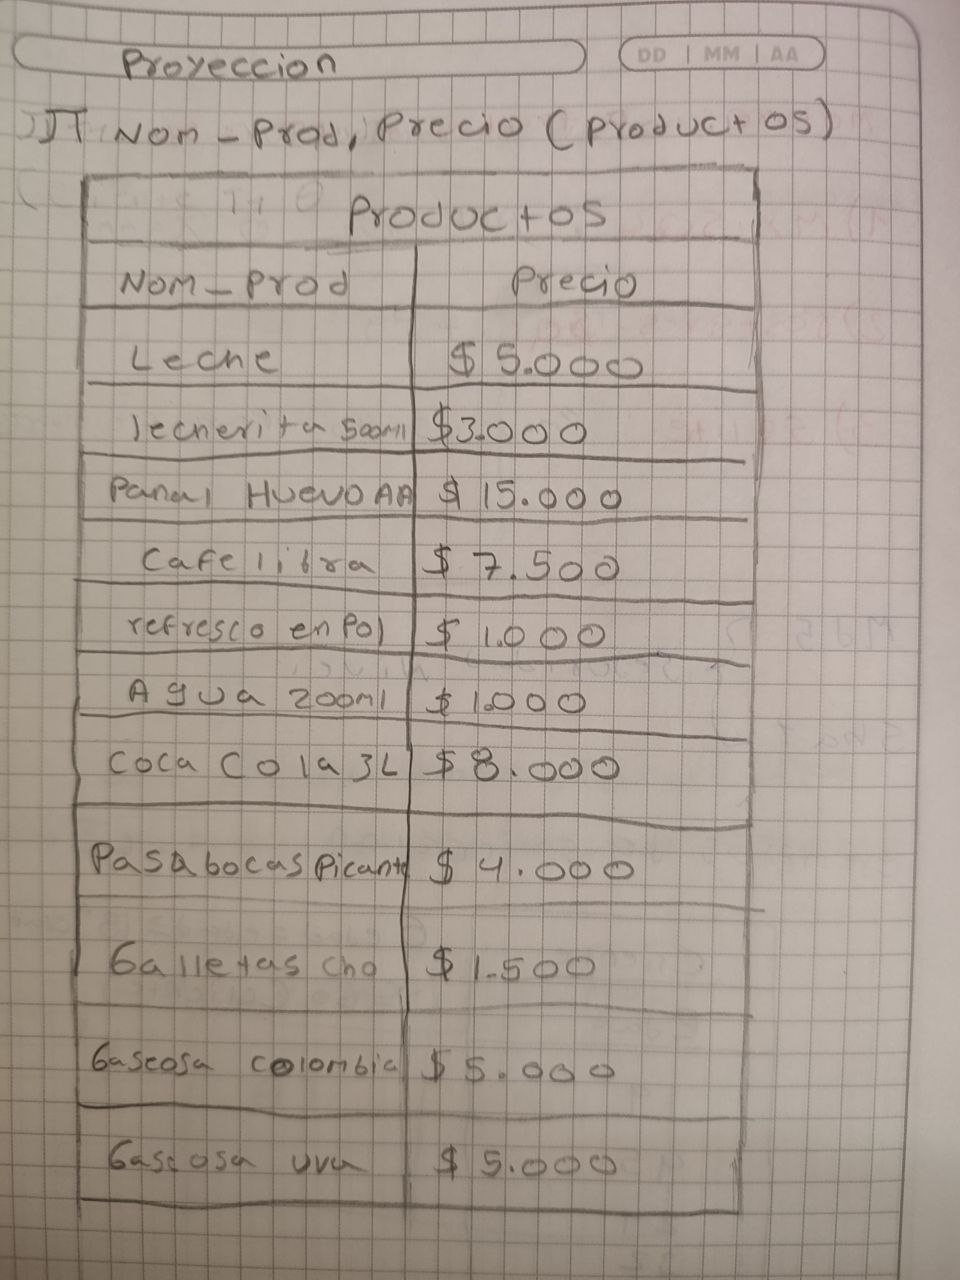 Proyeccion
DD | MM | AA
π Nom-Prod, Precio (Productos)
Productos
Nom-Prod Precio
Leche $ 5.000
lecherita 500ml $3.000
Panal HuevO AA $ 15.000
Cafe libra $ 7.500
refresco en Pol $ 1.000
Agua 200ml $ 1.000
Coca Cola 3L $ 8.000
Pasabocas Picante $ 4.000
Galletas cho $ 1.500
Gaseosa Colombia $ 5.000
Gaseosa uva $ 5.000